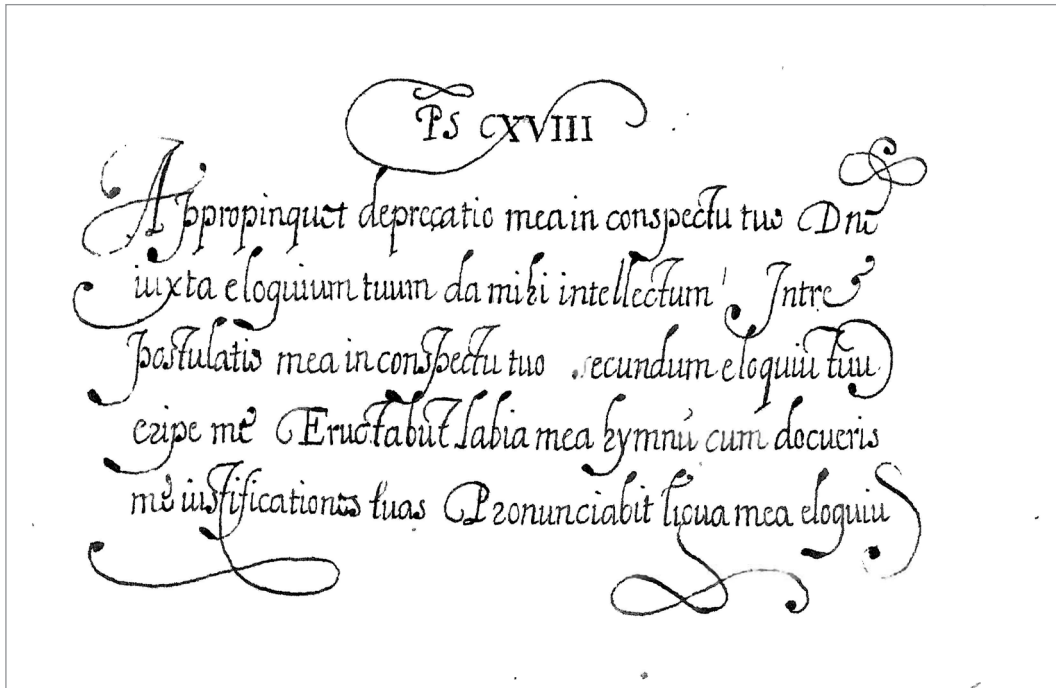 Ps CXVIII
Appropinquet deprecatio mea in conspectu tuo Dne
iuxta eloquium tuum da mihi intellectum Intre
postulatio mea in conspectu tuo secundum eloquiū tuū
eripe me Eructabūt labia mea hymnū cum docueris
me iustificationes tuas Pronunciabit ligua mea eloquiū